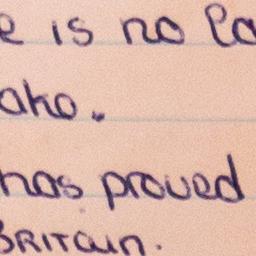 e is no la
ako.
has proved
BRITain.